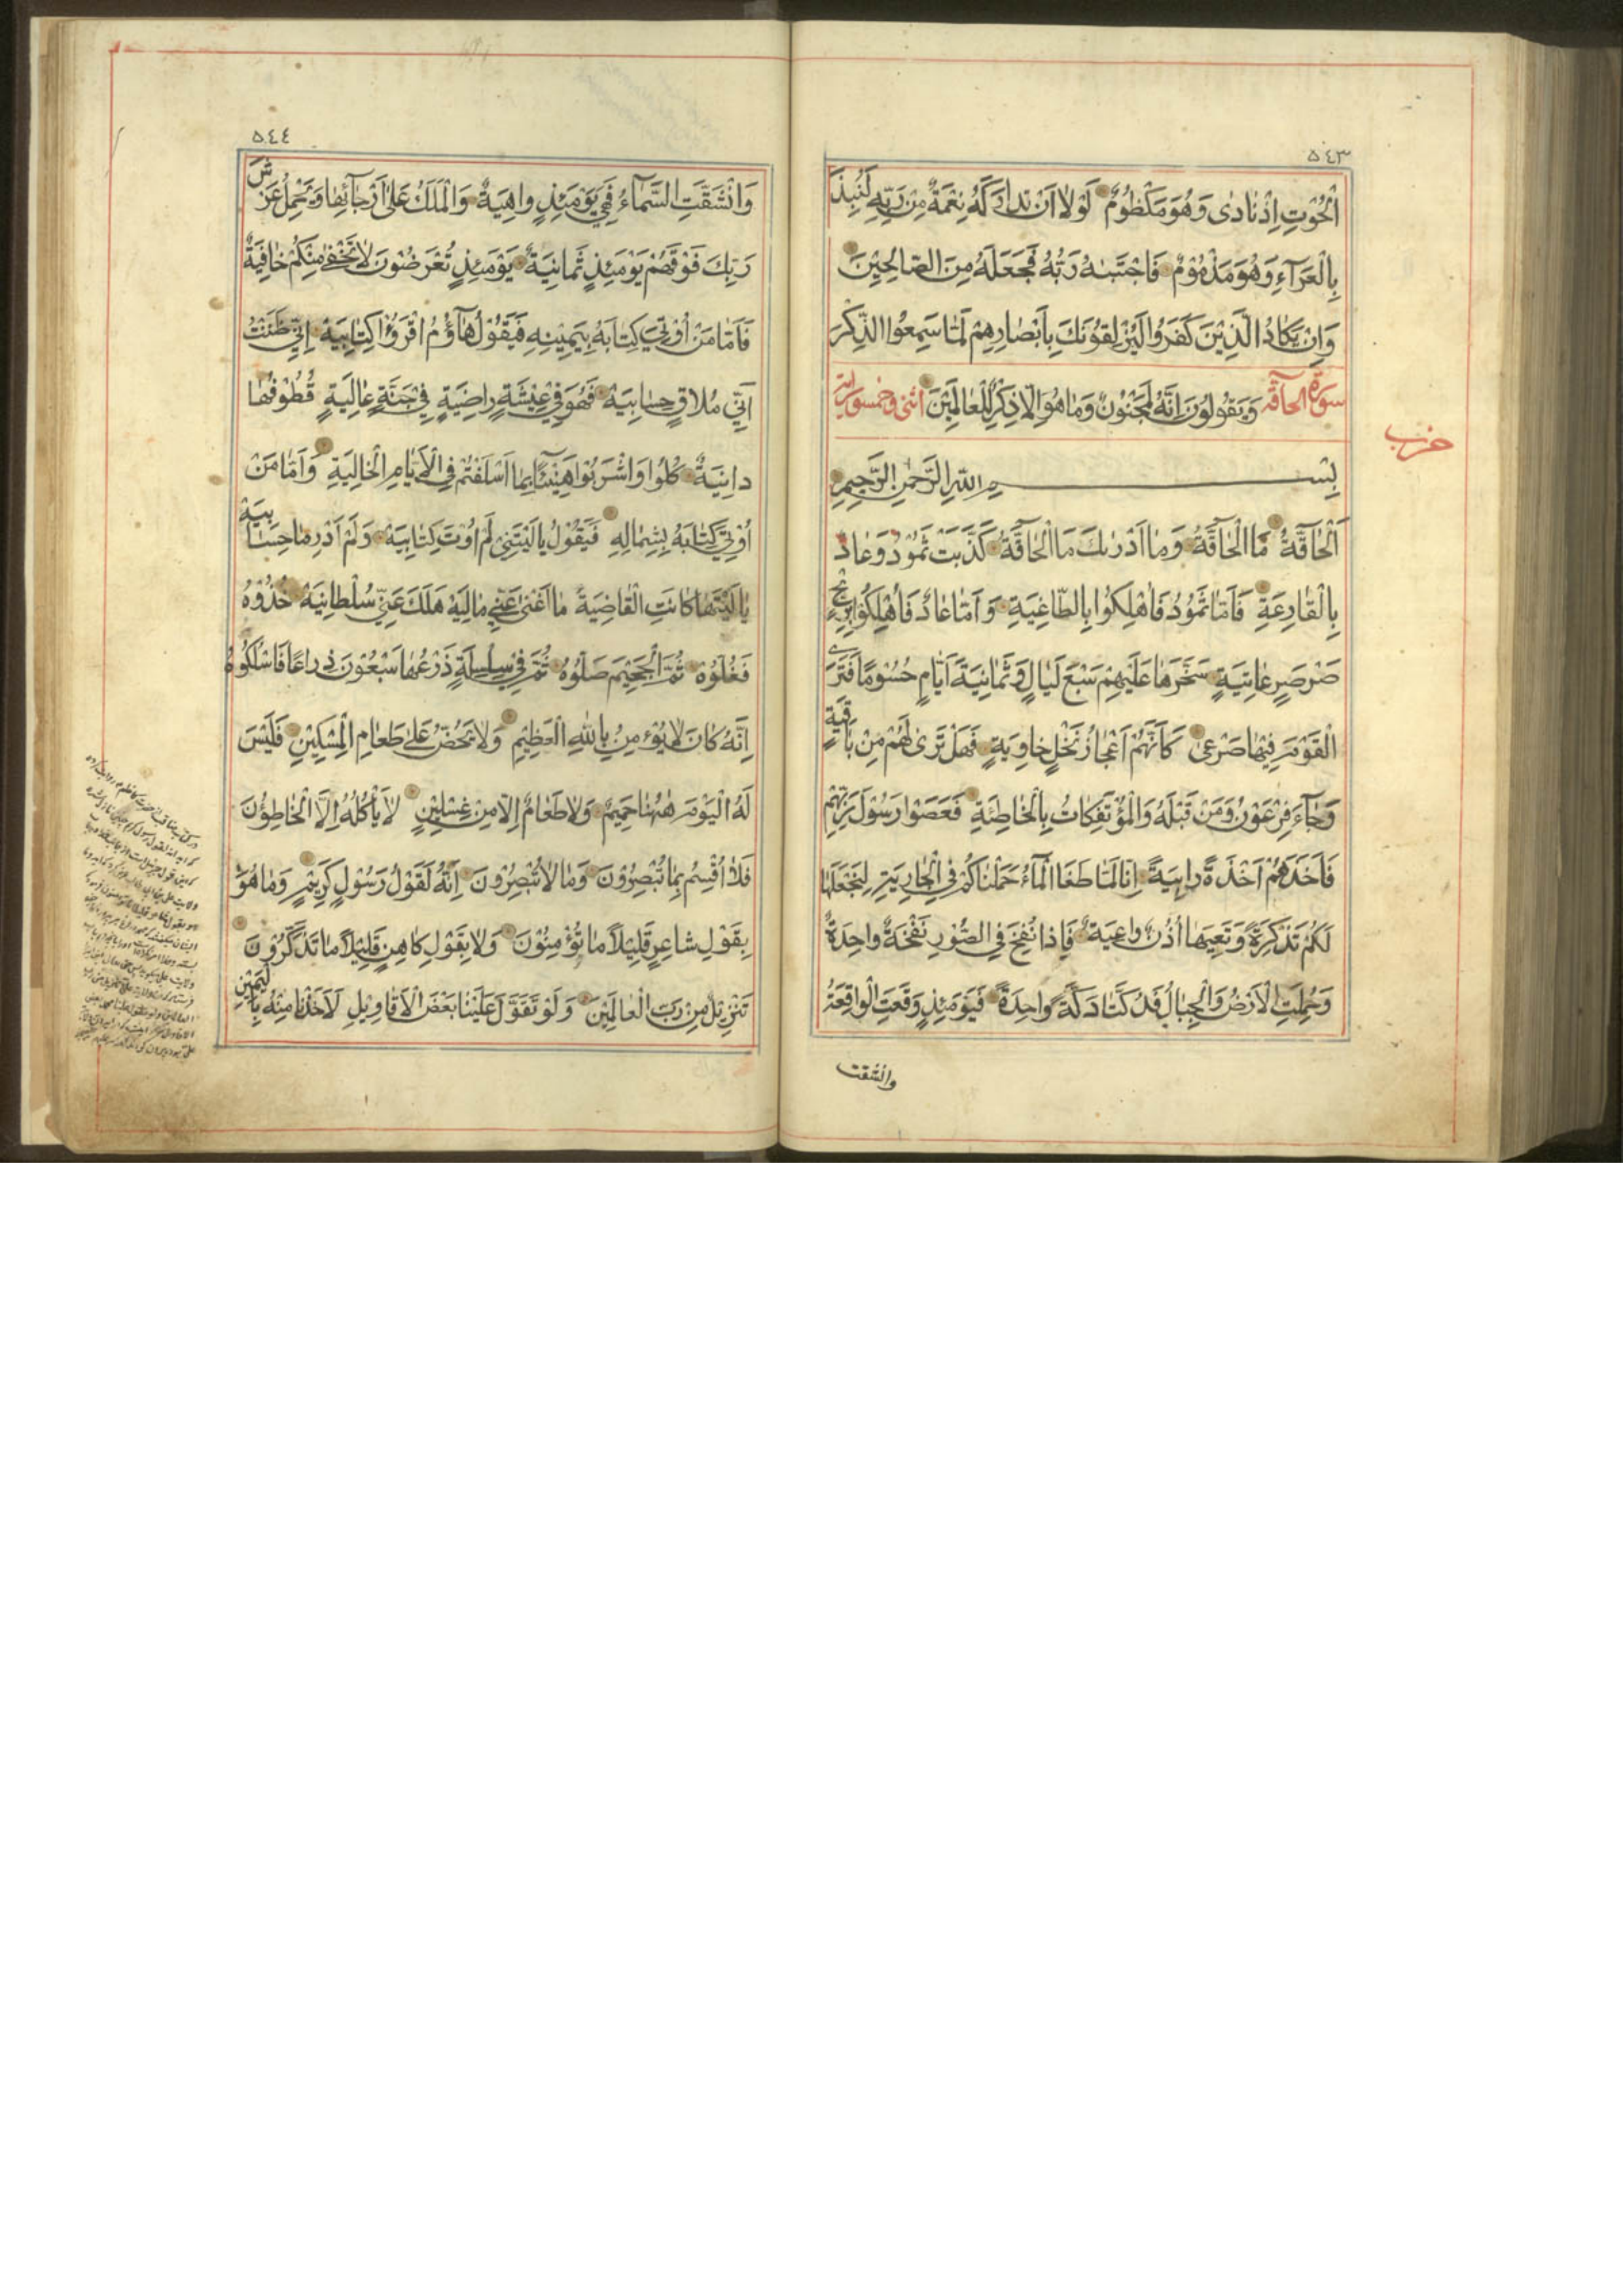 ٥٤٣
الْحُوْتِ اِذْ نَادٰى وَهُوَ مَكْظُوْمٌ لَوْلَا اَنْ تَدَارَكَهُ نِعْمَةٌ مِنْ رَبِّهِ لَنُبِذَ
بِالْعَرَآءِ وَهُوَ مَذْمُوْمٌ فَاجْتَبٰهُ رَبُّهُ فَجَعَلَهُ مِنَ الصّٰالِحِيْنَ
وَاِنْ يَكَادُ الَّذِيْنَ كَفَرُوا لَيُزْلِقُوْنَكَ بِاَبْصٰارِهِمْ لَمّٰا سَمِعُوا الذِّكْرَ
سورة الحآقة وَيَقُوْلُوْنَ اِنَّهُ لَمَجْنُوْنٌ وَمٰا هُوَ اِلّٰا ذِكْرٌ لِلْعٰالَمِيْنَ اثنى وخمسون اية
حزب
بِسْمِ اللّٰهِ الرَّحْمٰنِ الرَّحِيْمِ
اَلْحٰآقَّةُ مَا الْحٰآقَّةُ وَمٰا اَدْرٰىكَ مَا الْحٰآقَّةُ كَذَّبَتْ ثَمُوْدُ وَعٰادٌ
بِالْقٰارِعَةِ فَاَمّٰا ثَمُوْدُ فَاُهْلِكُوْا بِالطّٰاغِيَةِ وَاَمّٰا عٰادٌ فَاُهْلِكُوْا بِرِيْحٍ
صَرْصَرٍ عٰاتِيَةٍ سَخَّرَهٰا عَلَيْهِمْ سَبْعَ لَيٰالٍ وَثَمٰانِيَةَ اَيّٰامٍ حُسُوْمًا فَتَرَى
الْقَوْمَ فِيْهٰا صَرْعٰى كَاَنَّهُمْ اَعْجٰازُ نَخْلٍ خٰاوِيَةٍ فَهَلْ تَرٰى لَهُمْ مِنْ بٰاقِيَةٍ
وَجٰآءَ فِرْعَوْنُ وَمَنْ قَبْلَهُ وَالْمُؤْتَفِكٰاتُ بِالْخٰاطِئَةِ فَعَصَوْا رَسُوْلَ رَبِّهِمْ
فَاَخَذَهُمْ اَخْذَةً رٰابِيَةً اِنّٰا لَمّٰا طَغَا الْمٰآءُ حَمَلْنٰاكُمْ فِى الْجٰارِيَةِ لِنَجْعَلَهٰا
لَكُمْ تَذْكِرَةً وَتَعِيَهٰا اُذُنٌ وٰاعِيَةٌ فَاِذٰا نُفِخَ فِى الصُّوْرِ نَفْخَةٌ وٰاحِدَةٌ
وَحُمِلَتِ الْاَرْضُ وَالْجِبٰالُ فَدُكَّتٰا دَكَّةً وٰاحِدَةً فَيَوْمَئِذٍ وَقَعَتِ الْوٰاقِعَةُ
وانشقت
٥٤٤
وَانْشَقَّتِ السَّمٰآءُ فَهِيَ يَوْمَئِذٍ وٰاهِيَةٌ وَالْمَلَكُ عَلٰى اَرْجٰآئِهٰا وَيَحْمِلُ عَرْشَ
رَبِّكَ فَوْقَهُمْ يَوْمَئِذٍ ثَمٰانِيَةٌ يَوْمَئِذٍ تُعْرَضُوْنَ لٰا تَخْفٰى مِنْكُمْ خٰافِيَةٌ
فَاَمّٰا مَنْ اُوْتِىَ كِتٰابَهُ بِيَمِيْنِهِ فَيَقُوْلُ هٰآؤُمُ اقْرَؤُا كِتٰابِيَهْ اِنِّى ظَنَنْتُ
اَنِّى مُلٰاقٍ حِسٰابِيَهْ فَهُوَ فِى عِيْشَةٍ رٰاضِيَةٍ فِى جَنَّةٍ عٰالِيَةٍ قُطُوْفُهٰا
دٰانِيَةٌ كُلُوْا وَاشْرَبُوْا هَنِيْئًا بِمٰا اَسْلَفْتُمْ فِى الْاَيّٰامِ الْخٰالِيَةِ وَاَمّٰا مَنْ
اُوْتِىَ كِتٰابَهُ بِشِمٰالِهِ فَيَقُوْلُ يٰا لَيْتَنِى لَمْ اُوْتَ كِتٰابِيَهْ وَلَمْ اَدْرِ مٰا حِسٰابِيَهْ
يٰا لَيْتَهٰا كٰانَتِ الْقٰاضِيَةَ مٰا اَغْنٰى عَنِّى مٰالِيَهْ هَلَكَ عَنِّى سُلْطٰانِيَهْ خُذُوْهُ
فَغُلُّوْهُ ثُمَّ الْجَحِيْمَ صَلُّوْهُ ثُمَّ فِى سِلْسِلَةٍ ذَرْعُهٰا سَبْعُوْنَ ذِرٰاعًا فَاسْلُكُوْهُ
اِنَّهُ كٰانَ لٰا يُؤْمِنُ بِاللّٰهِ الْعَظِيْمِ وَلٰا يَحُضُّ عَلٰى طَعٰامِ الْمِسْكِيْنِ فَلَيْسَ
لَهُ الْيَوْمَ هٰهُنٰا حَمِيْمٌ وَلٰا طَعٰامٌ اِلّٰا مِنْ غِسْلِيْنٍ لٰا يَأْكُلُهُ اِلَّا الْخٰاطِؤُنَ
فَلٰا اُقْسِمُ بِمٰا تُبْصِرُوْنَ وَمٰا لٰا تُبْصِرُوْنَ اِنَّهُ لَقَوْلُ رَسُوْلٍ كَرِيْمٍ وَمٰا هُوَ
بِقَوْلِ شٰاعِرٍ قَلِيْلًا مٰا تُؤْمِنُوْنَ وَلٰا بِقَوْلِ كٰاهِنٍ قَلِيْلًا مٰا تَذَكَّرُوْنَ
تَنْزِيْلٌ مِنْ رَبِّ الْعٰالَمِيْنَ وَلَوْ تَقَوَّلَ عَلَيْنٰا بَعْضَ الْاَقٰاوِيْلِ لَاَخَذْنٰا مِنْهُ بِالْيَمِيْنِ